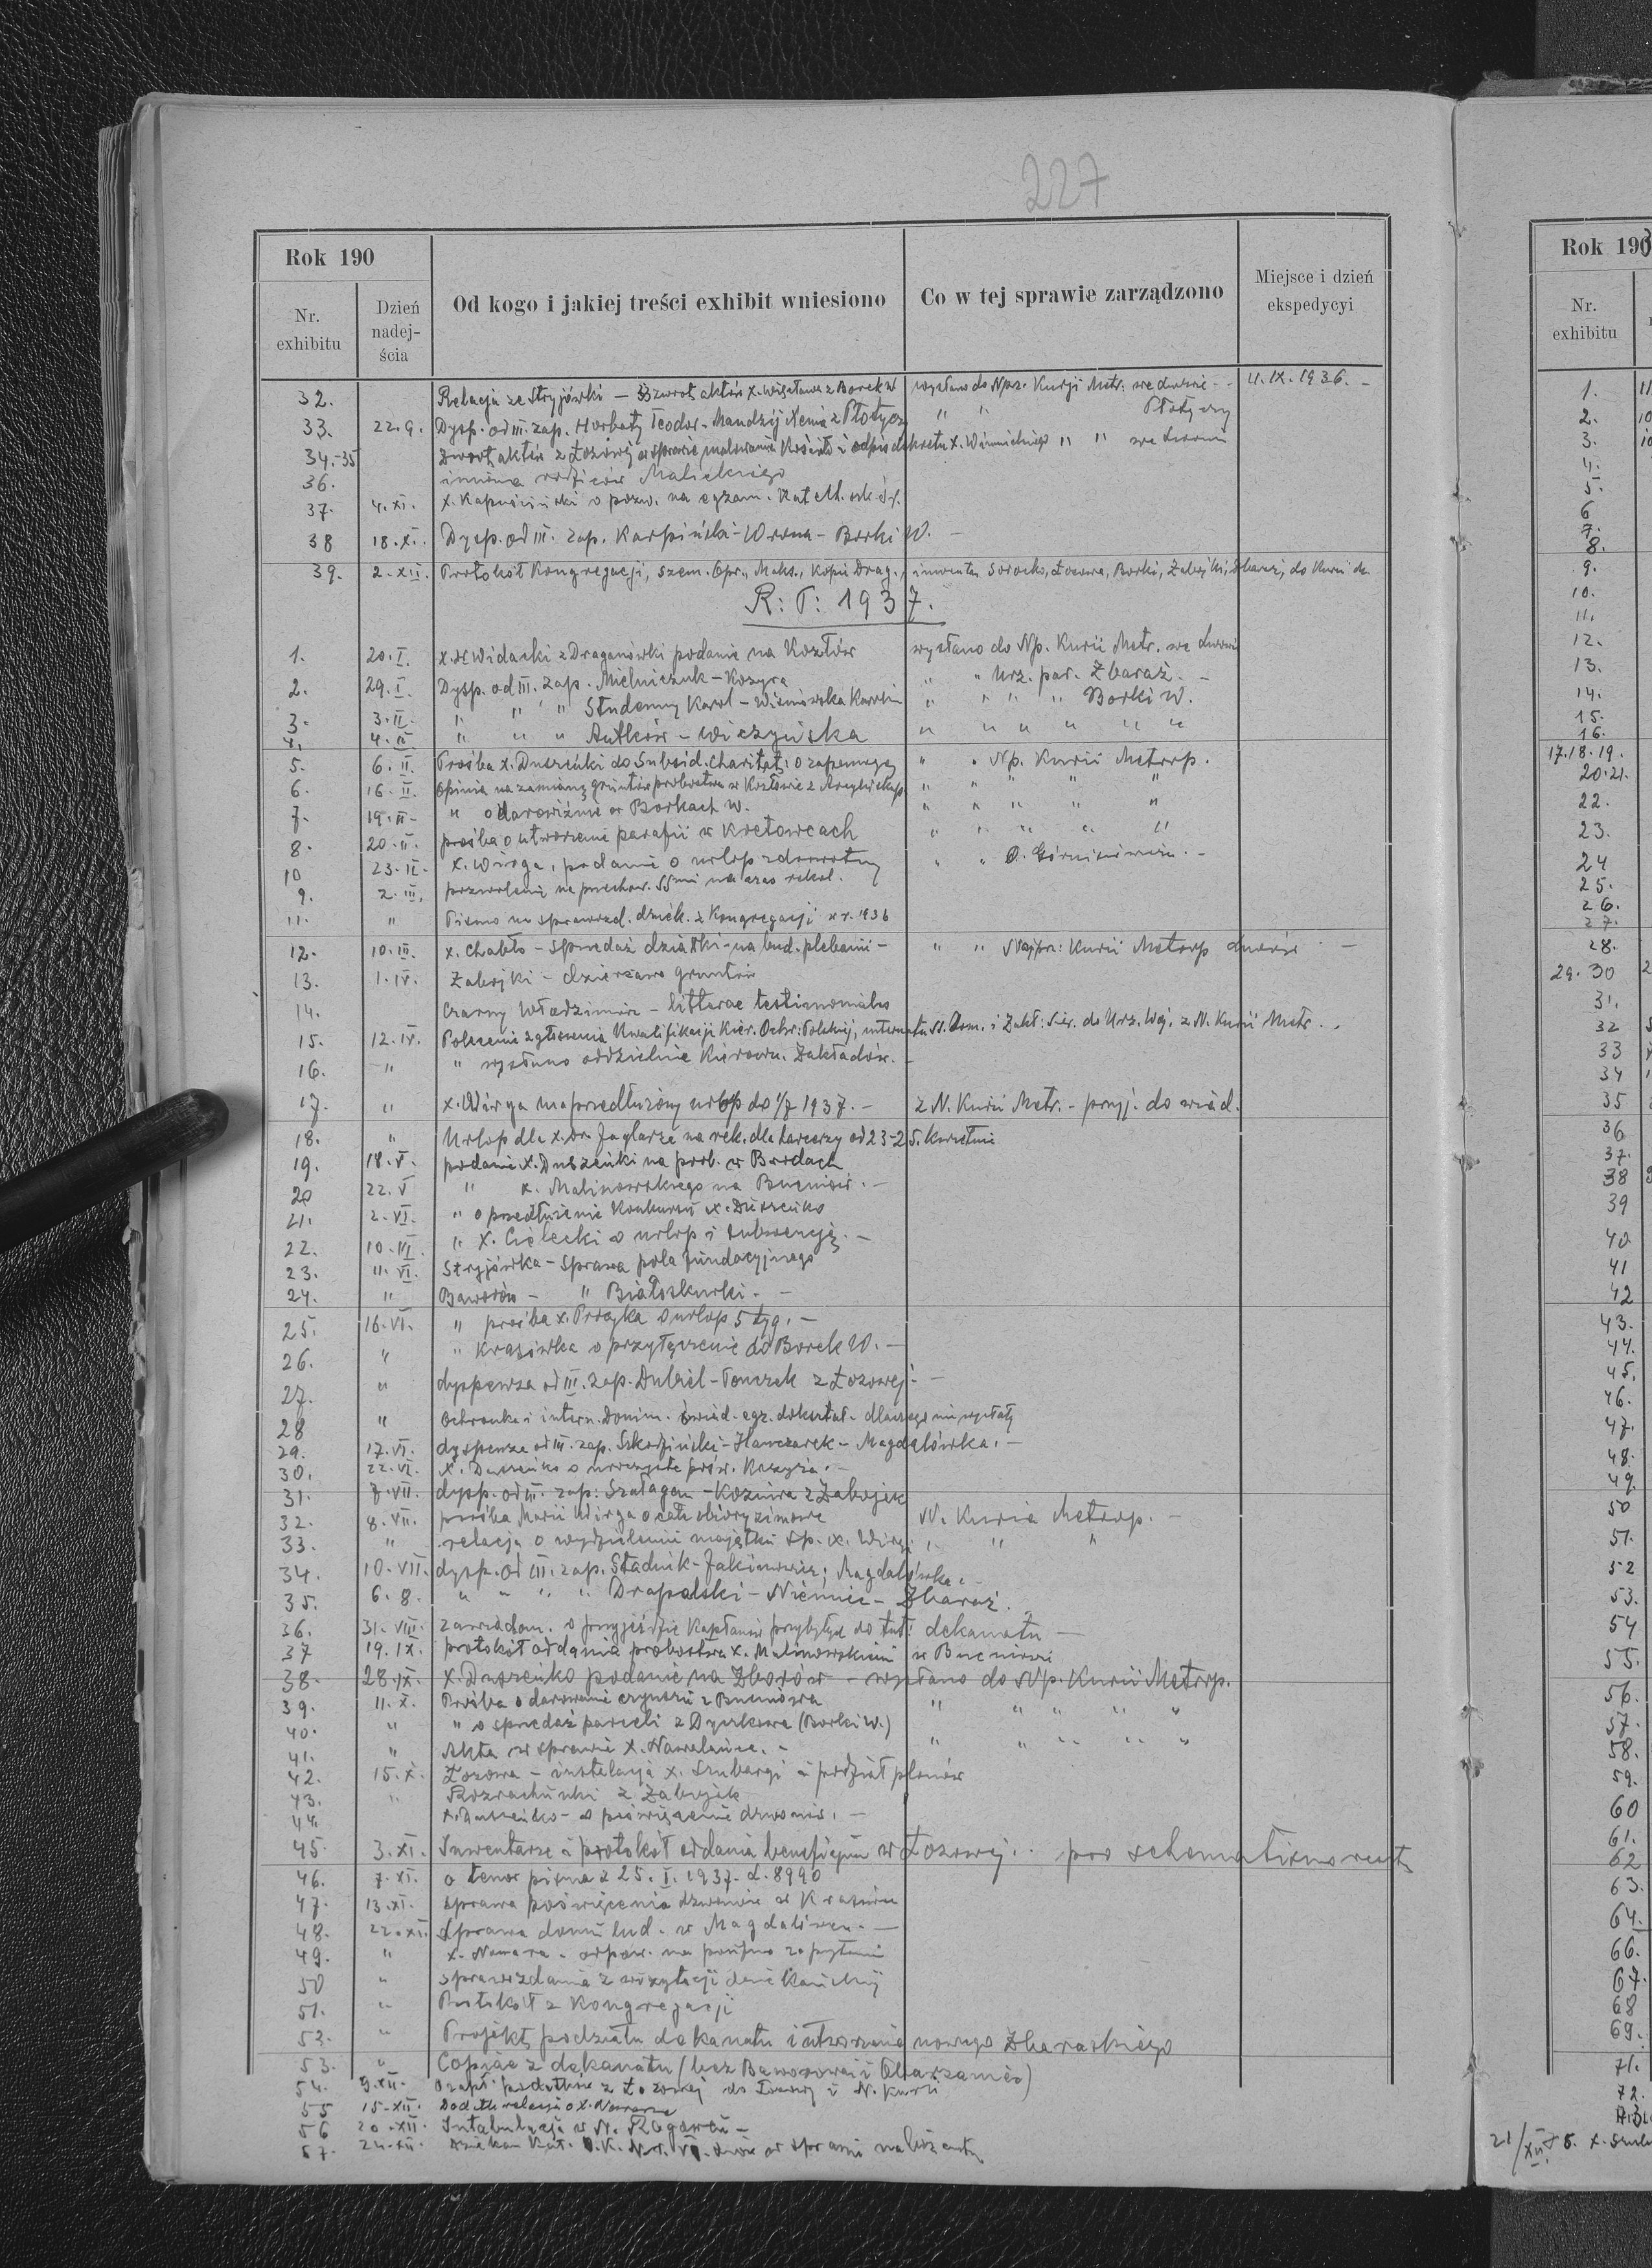 227
Rok 190
Nr. exhibitu
Dzień nadejścia
Od kogo i jakiej treści exhibit wniesiono
Co w tej sprawie zarządzono
Miejsce i dzień ekspedycyi
32. Relacja ze Stryjówki — zwrot aktów x. z Borek W wysłano do Npz. Kurji Metr. we Lwowie - 4. IX. 1936. -
33. 22.9. Dysp. od III. zap. Horbaty Teodor - Mandzij z Płotycz " " Płotyczy
34.-35 Zwrot aktów z Łozowej w sprawie malowania Kościoła i odpis dekretu X. Winnickiego " " we Lwowie
36. imiona rodziców Malickiego
37. 4. XI. X. Kapuściński o pozw. na egzam.
38 18. XI. Dysp. od III. zap. Karpiński - Wrona - Borki W. -
39. 2. XII. Protokół Kongregacji, szem. Opr., Maks., Kopie Drag., inwenta Borocko, Łozowa, Borki, Zabojki, Zbaraż, do Kurii
R: P: 1937.
1. 20. I. X. Widacki z Draganówki podanie na Kozłów wysłano do Np. Kurii Metr. we Lwowie
2. 29. I. Dysp. od III. zap. Mielniczuk - Kozyra " " Urz. par. Zbaraż. -
3. 3. II. " " " Studenny Karol - Wiśniowska Karolin " " " " Borki W.
4. 4. II " " " Antków - Wiczyńska " " " " " "
5. 6. II. Prośba X. Duszeńki do Subsid. Charitat. o zapomogę " " Np. Kurii Metrop.
6. 16. II. Opinia na zamianę gruntów probostwa w Kozłowie z " " " " "
7. 19. II. " o darowiźnie w Borkach W. " " " " "
8. 20. II. prośba o utworzenie parafii w Kretowcach " " " " "
10 23. II. X. Wirga, podanie o urlop zdrowotny " " O.
9. 2. III. pozwolenie na przechow. SSmi na czas rekol.
11. " Pismo na sprawozd. dziek. z Kongregacji w r. 1936
12. 10. III. X. Chabło - sprzedaż działki - na bud. plebanii - " " Najprz: Kurii Metrop Lwowie -
13. 1. IV. Zabojki - dzierżawa gruntów
14. Czarny Włodzimierz - litterae testimoniales
15. 12. IV. Polecenie zgłoszenia Kwalifikacji Kier. Ochr. Polskiej, internatu SS. Dom. i Zakł: Sier. do Urz. Woj. z N. Kurii Metr. -
16. " " wysłano oddzielnie Kierown. Zakładów. -
17. " X. Wirga ma przedłużony urlop do 1/7 1937. - z N. Kurii Metr. - przyj. do wiad.
18. " Urlop dla X. Dr. Jaglarza na rek. dla harcerzy od 23-25. kwietnia
19. 18. V. podanie X. Duszeńki na prob. w Brodach
20 22. V " X. Malinowskiego na Bucniów. -
21. 2. VI. " o przedłużenie Konkursu X. Duszeńko
22. 10. VI. " X. Ciołecki o urlop i subwencję. -
23. 11. VI. Stryjówka - sprawa pola fundacyjnego
24. " Baworów - " Białoskurki. -
25. 16. VI. " prośba X. Przyka o urlop 5 tyg. -
26. " " Krasówka o przyłączenie do Borek W. -
27. " dyspensa od III. zap. Dubiel - Tomczak z Łozowej. -
28 " Ochronka i intern. Domin. świad. egz. dokształ. dlaczego nie wysłały
29. 17. VI. dyspensa od III. zap. Szkodziński - Hanczarek - Magdalówka. -
30. 22. VI. X. Duszeńko o uroczyste Kozyra. -
31. 7. VII. dysp. od III. zap: Szałagan - Koźmira z Zabojek
32. 8. VII. prośba Marii Wirga o zimowe N. Kuria Metrop. -
33. " relacja o wydzieleniu majątku śp. X. Wirgi, " "
34. 10. VII. dysp. od III. zap. Stadnik - Jakimowicz; Magdalówka. -
35. 6. 8. " " " " Drapalski - Niemiec - Zbaraż.
36. 31. VIII. zawiadom. o przyjeździe Kapłanów przybyłych do tut. dekanatu -
37 19. IX. protokół oddania probostwa X. Malinowskiemu w Bucniowie
38. 28. IX. X. Duszeńko podanie na Zborów - wysłano do Np. Kurii Metrop.
39. 11. X. Prośba o darowanie czynszu z Bucniowa " " " " "
40. " " o sprzedaż parceli z Dyczkowa (Borki W.)
41. " Akta w sprawie X. Nawalańca. - " " " " "
42. 15. X. Łozowa - instalacja X. Szubargi i podział plonów
43. " Rozrachunki z Zabojek
44. X. Duszeńko - o poświęcenie dzwonów. -
45. 3. XI. Inwentarze i protokół oddania beneficjum w Łozowej. pro schematismo
46. 7. XI. o tenor pisma z 25. I. 1937. L. 8990
47. 13. XI. sprawa poświęcenia dzwonów w Krasówce
48. 22. XI. Sprawa domu lud. w Magdalówce. -
49. " X. Nawara. odpow. na poufne zapytanie
50 " sprawozdania z wizytacji
51. " Protokół z Kongregacji
52. " Projekt podziału dekanatu i utworzenie nowego Zbaraskiego
53. " Copiae z dekanatu (bez Baworowa i Obarzaniec)
54. 9. XII. podatków z Łozowej do i N. Kurii
55 15. XII. Dodatk. relacja o X. Nawarze
56 20. XII. Intabulacja w N. Rogowcu -
57. 24. XII.
Rok 193
Nr. exhibitu
1.
2.
3.
4.
5.
6
7.
8.
9.
10.
11.
12.
13.
14.
15.
16.
17. 18. 19.
20. 21.
22.
23.
24
25.
26.
27.
28.
29. 30
31.
32
33
34
35
36
37.
38
39
40
41
42
43.
44.
45.
46.
47.
48.
49.
50
51.
52
53.
54
55.
56.
57.
58.
59.
60
61.
62
63.
64.
66.
67.
68
69.
71.
72.